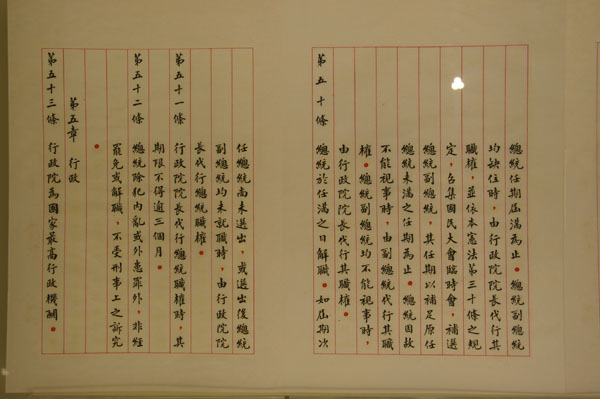 總統任期屆滿為止。總統副總統
均缺位時，由行政院院長代行其
職權，並依本憲法第三十條之規
定，召集國民大會臨時會，補選
總統副總統，其任期以補足原任
總統未滿之任期為止。總統因故
不能視事時，由副總統代行其職
權。總統副總統均不能視事時，
由行政院院長代行其職權。
第五十條　總統於任滿之日解職。如屆期次
任總統尚未選出，或選出後總統
副總統均未就職時，由行政院院
長代行總統職權。
第五十一條　行政院院長代行總統職權時，其
期限不得逾三個月。
第五十二條　總統除犯內亂或外患罪外，非經
罷免或解職，不受刑事上之訴究
。
第五章　行政
第五十三條　行政院為國家最高行政機關。